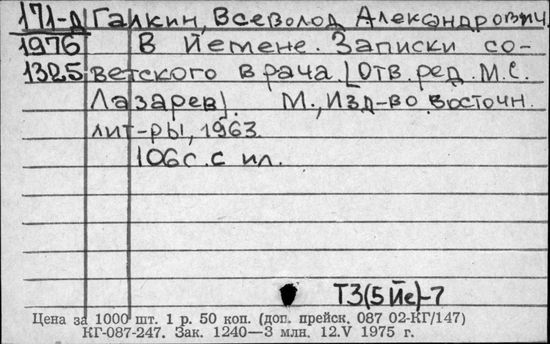 171-д Галкин, Всеволод Александрович.
1976 В Йемене. Записки со-
1325 ветского врача. [Отв. ред. М.С.
Лазарев]. М., Изд-во восточн.
лит-ры, 1963.
106с. с ил.
Т3(5Йе)-7
Цена за 1000 шт. 1 р. 50 коп. (доп. прейск. 087 02-КГ/147)
КГ-087-247. Зак. 1240—3 млн. 12.V 1975 г.